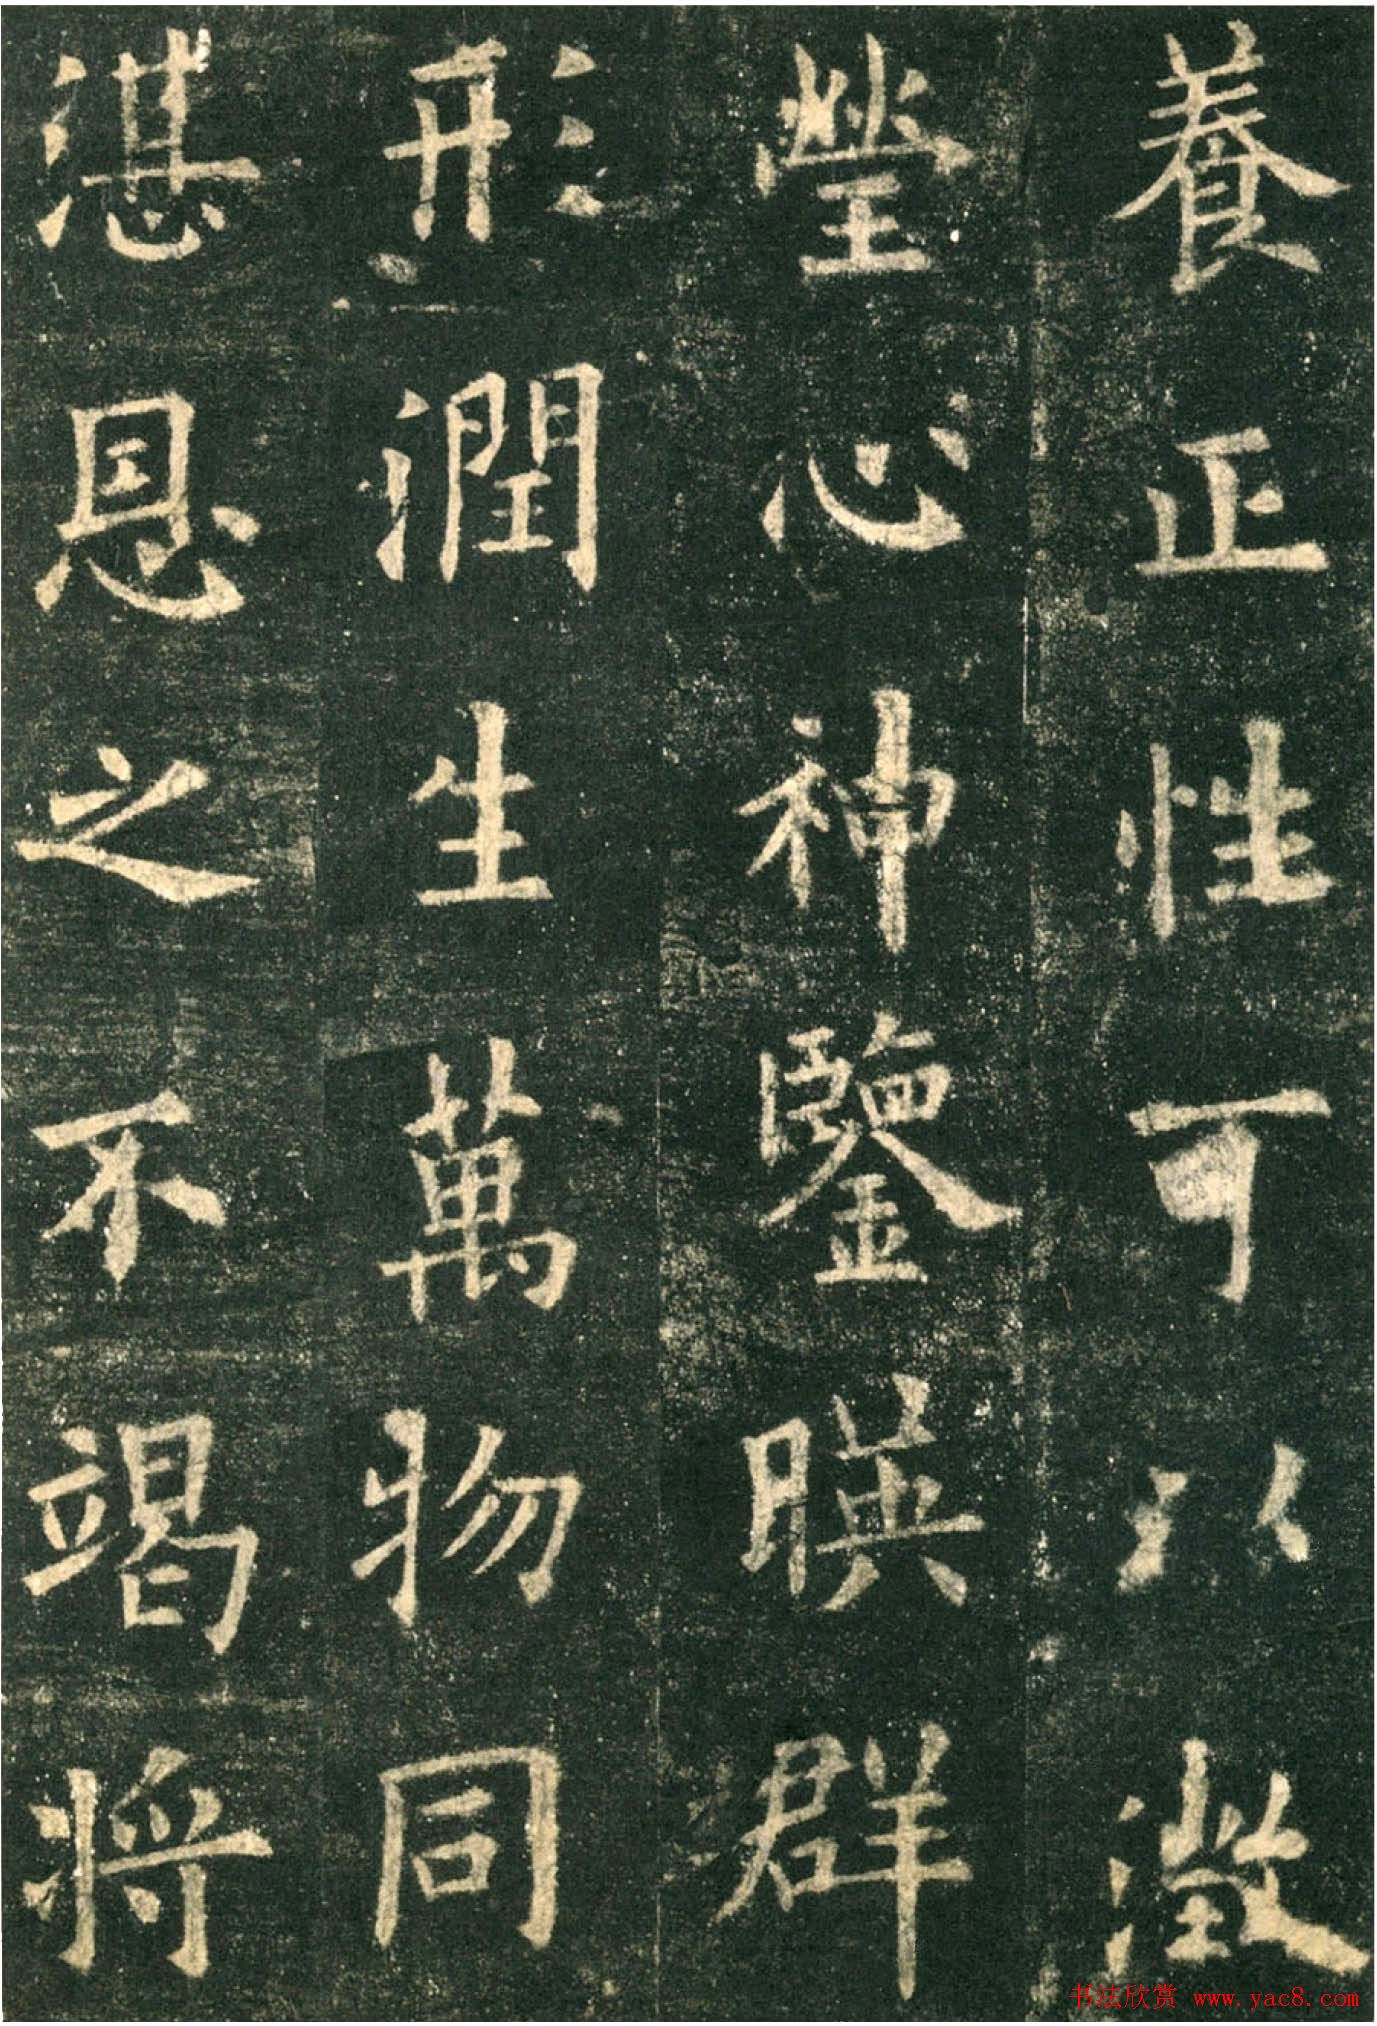 養正性可以澂
瑩心神鑒暎群
形潤生萬物同
湛恩之不竭將
书法欣赏 www.yac8.com